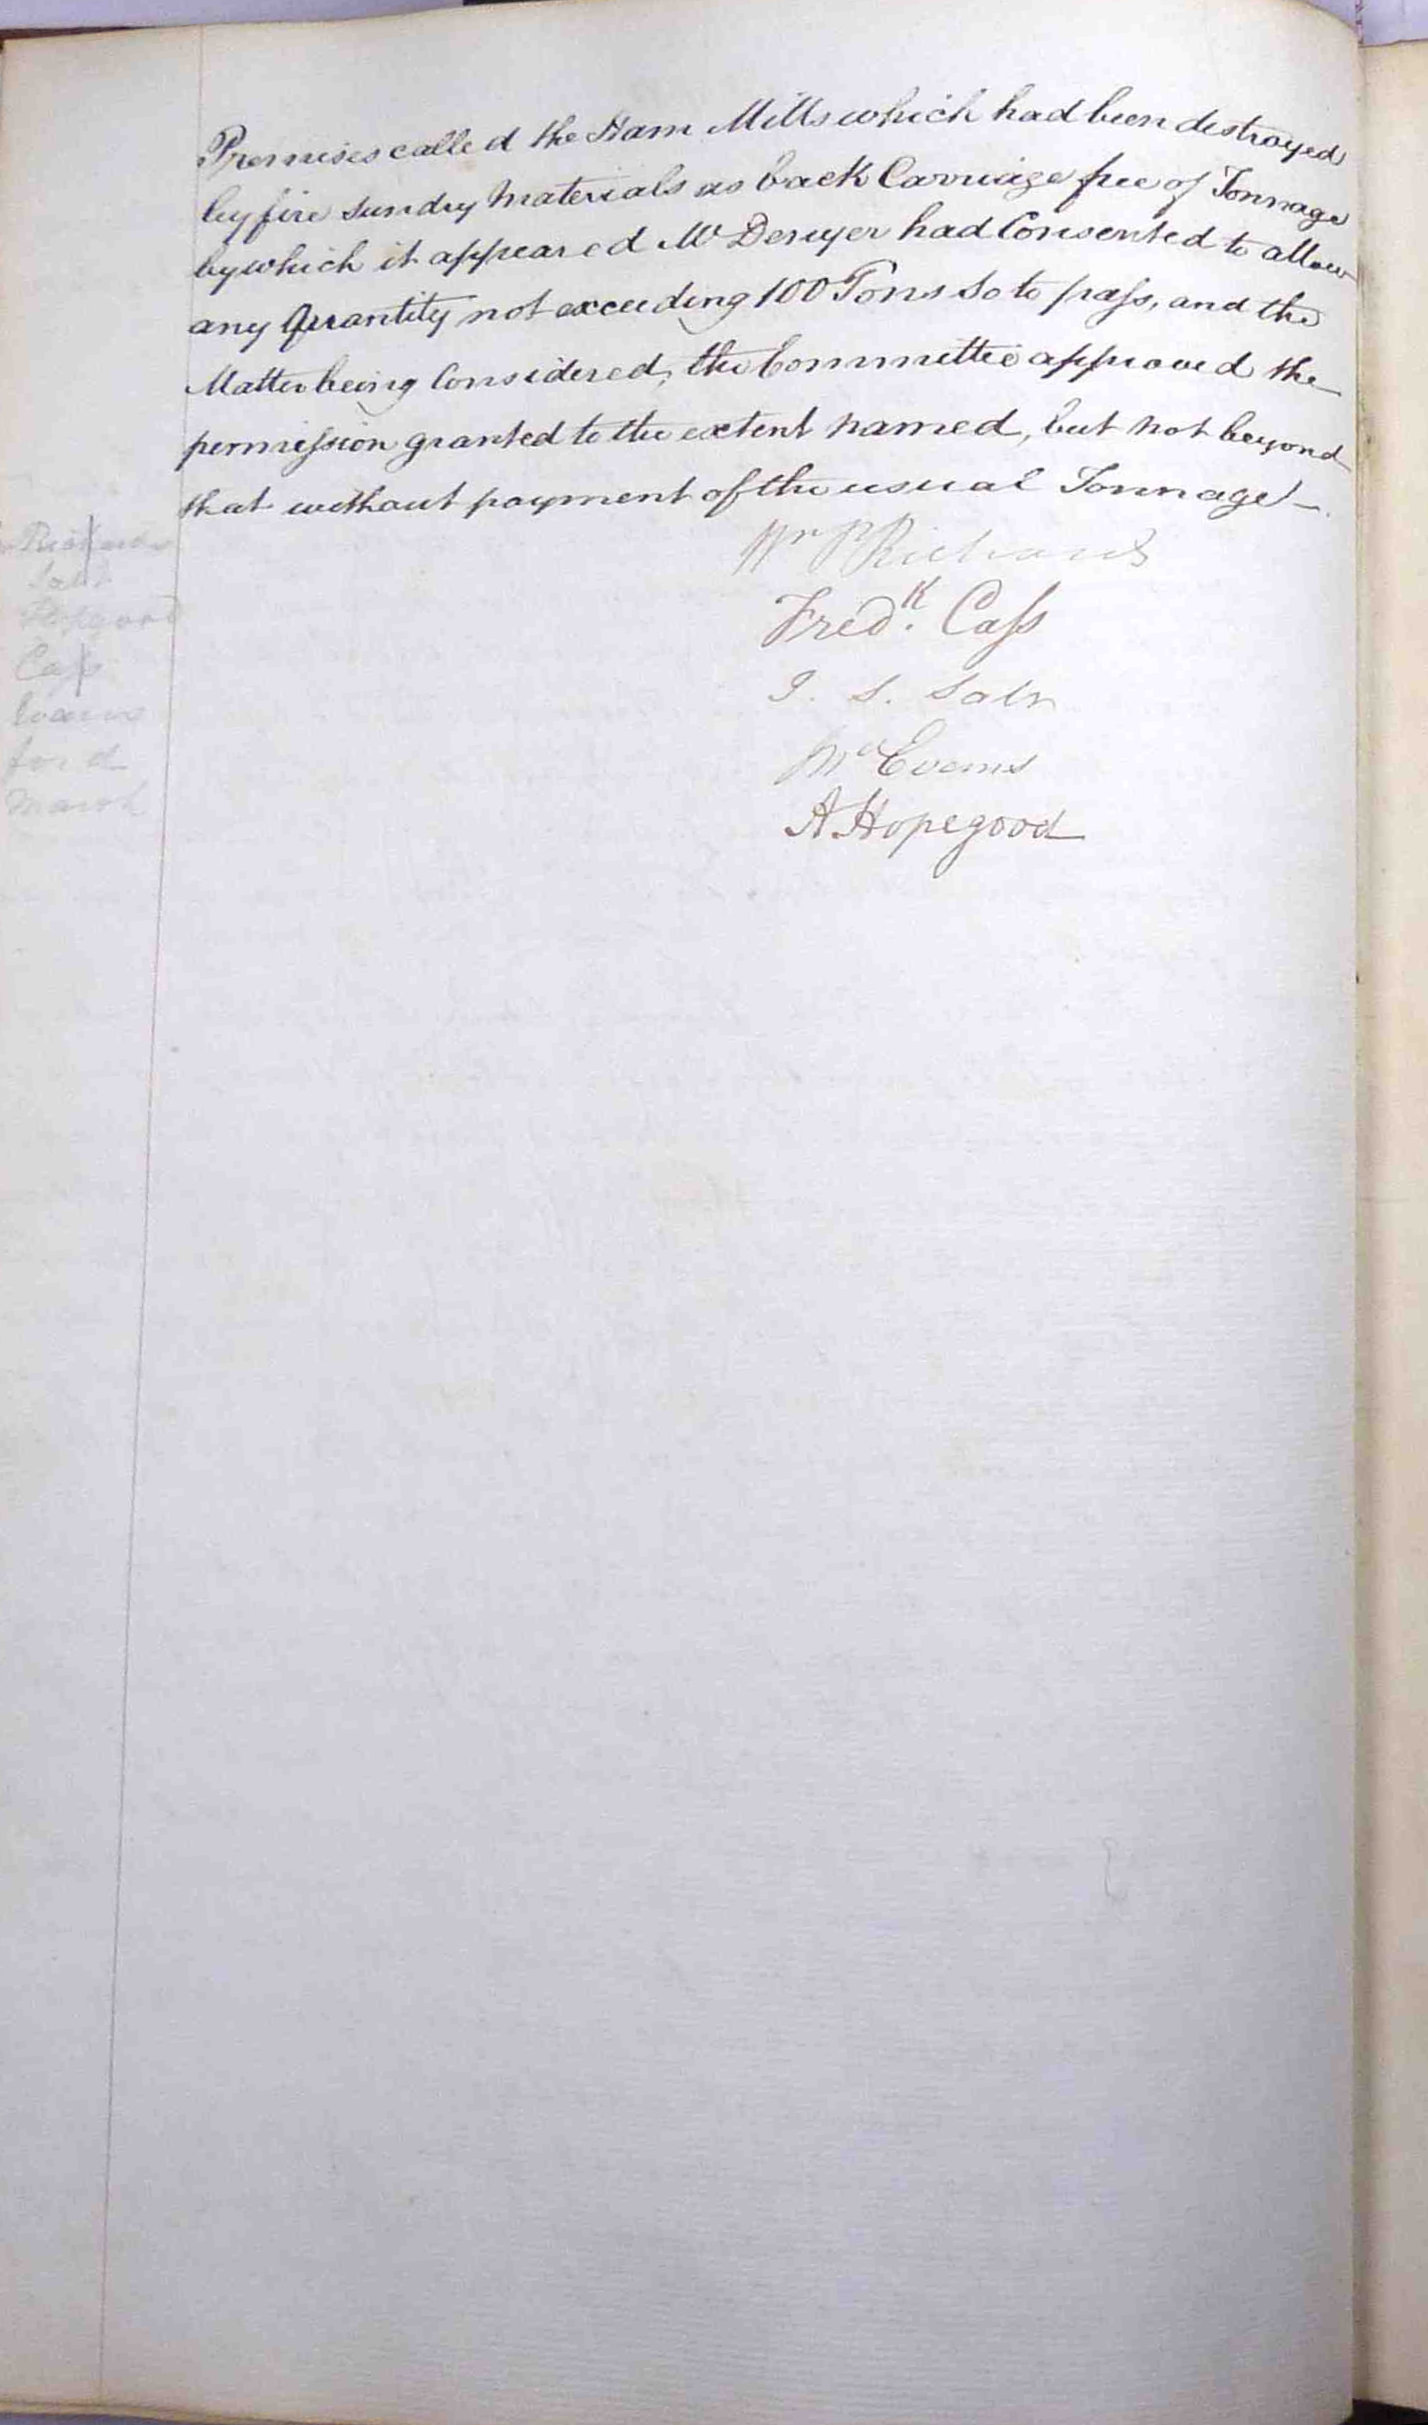 Premises called the Ham Mills which had been destroyed
by fire sundry Materials as back Carriage free of Tonnage
by which it appeared Mr Denyer had Consented to allow
any Quantity not exceeding 100 Tons so to pass, and the
Matter being Considered, the Committee approved the
permission granted to the extent named, but not beyond
that without payment of the usual Tonnage —.
Wm P Richards
Fredk. Cass
T. S. Salr
Wm Evans
A Hopegood
Richards
Hopegood
Cass
Evans
ford
Marsh